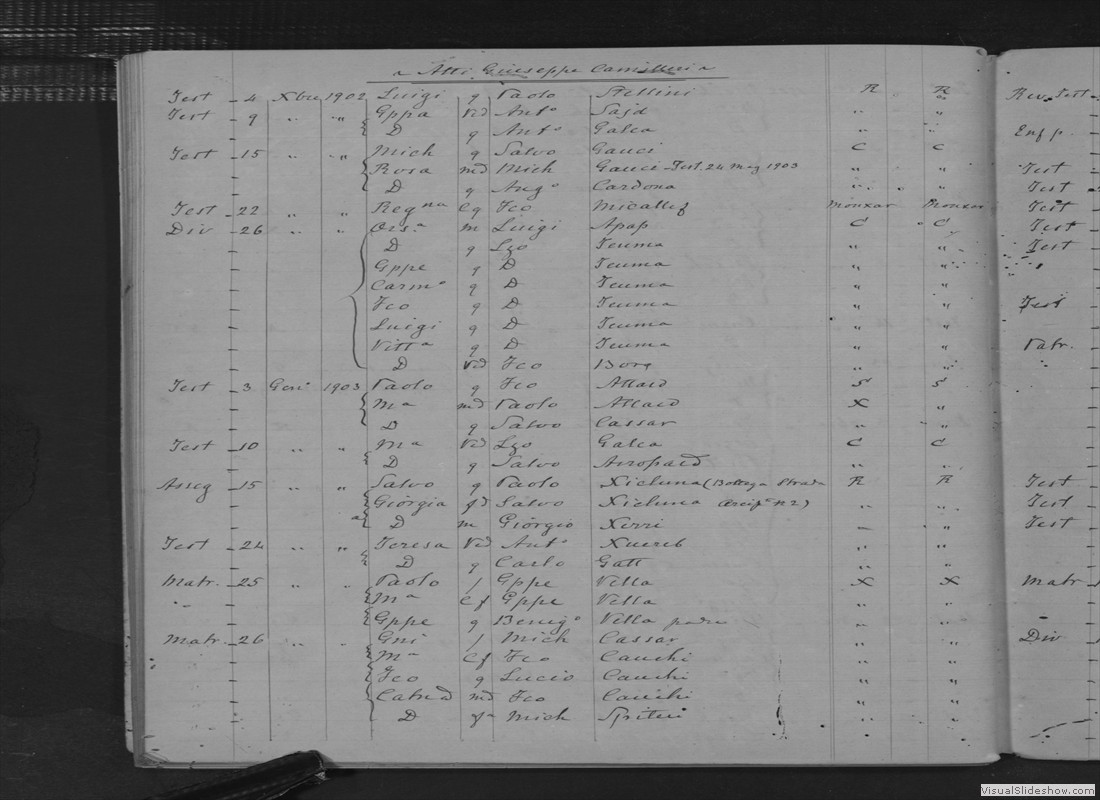 Atti Giuseppe Camilleri
Test 4 Xbre 1902 Luigi q Paolo Stellini R R Rev. Test
Test 9 " " Gppa Vd Anto Said " " 
D q Anto Galea " " Enf p.
Test 15 " " Mich q Salvo Gauci C C
Rosa md Mich Gauci - Test. 24 Mag 1903 " " Test
D q Ango Cardona " " Test
Test 22 " " Regna Cq Fco Micallef Munxar Munxar Test
Div 26 " " Orsa m Luigi Apap C C Test
D q Lzo Teuma " " Test
Gppe q D Teuma " "
Carmo q D Teuma " "
Fco q D Teuma " " Test
Luigi q D Teuma " "
Vitta q D Teuma " " Matr.
D Vd Fco Borg " "
Test 3 Geno 1903 Paolo q Fco Attard S S
Ma md Paolo Attard X "
D q Salvo Cassar " "
Test 10 " " Ma Vd Lzo Galea C C
D q Salvo " "
15 " " Salvo q Paolo Xicluna (Bottega Strada R R Test
Giorgia fd Salvo Xicluna Arcip No 2) " " Test
D m Giorgio Xerri " " Test
Test 24 " " Teresa Vd Anto Xuereb " "
D q Carlo Gatt " "
Matr. 25 " " Paolo f Gppe Vella X X Matr
Ma Cf Gppe Vella " "
Gppe q Benigo Vella padre " "
Matr. 26 " " Gni f Mich Cassar " " Div
Ma Cf Fco Cauchi " "
Fco q Lucio Cauchi " "
md Fco Cauchi " "
D Mich Spiteri " "
VisualSlideshow.com